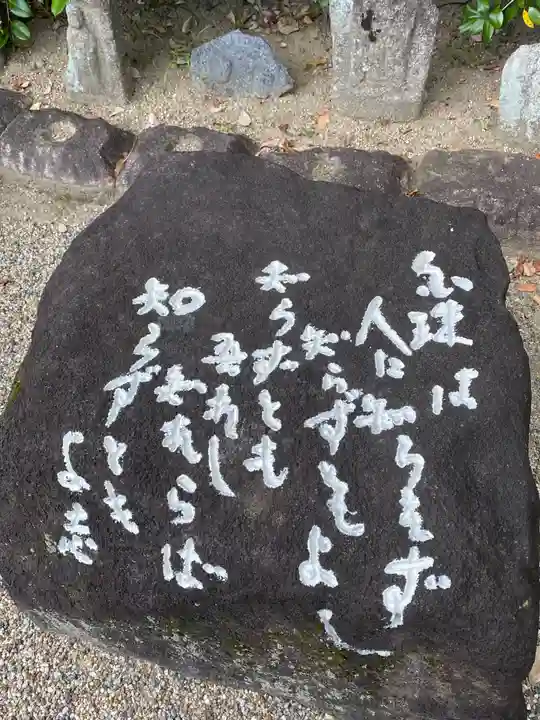 白珠は
人に知らえず
知らずともよし
知らずとも
吾れし
知れらば
知らずとも